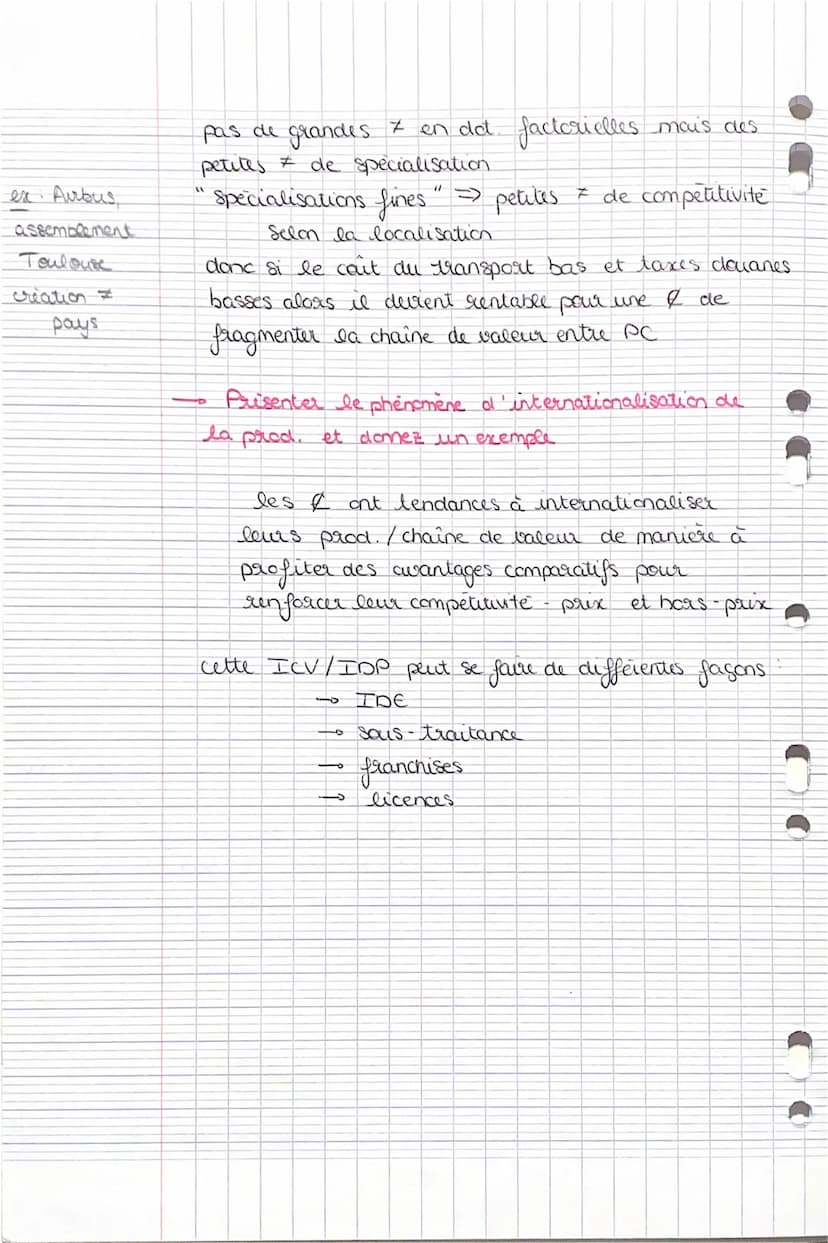 pas de grandes ≠ en dot. factorielles mais des
petites ≠ de spécialisation
ex : Airbus,
assemblement
Toulouse
création ≠
pays
"spécialisations fines" => petites ≠ de compétitivité
selon la localisation
donc si le coût du transport bas et taxes douanes
basses alors il devient rentable pour une € de
fragmenter la chaîne de valeur entre PC
→ Présenter le phénomène d'internationalisation de
la prod. et donnez un exemple
les € ont tendances à internationaliser
leurs prod. / chaîne de valeur de manière à
profiter des avantages comparatifs pour
renforcer leur compétitivité - prix et hors-prix
cette ICV/IDP peut se faire de différentes façons :
→ IDE
→ sous-traitance
→ franchises
→ licences